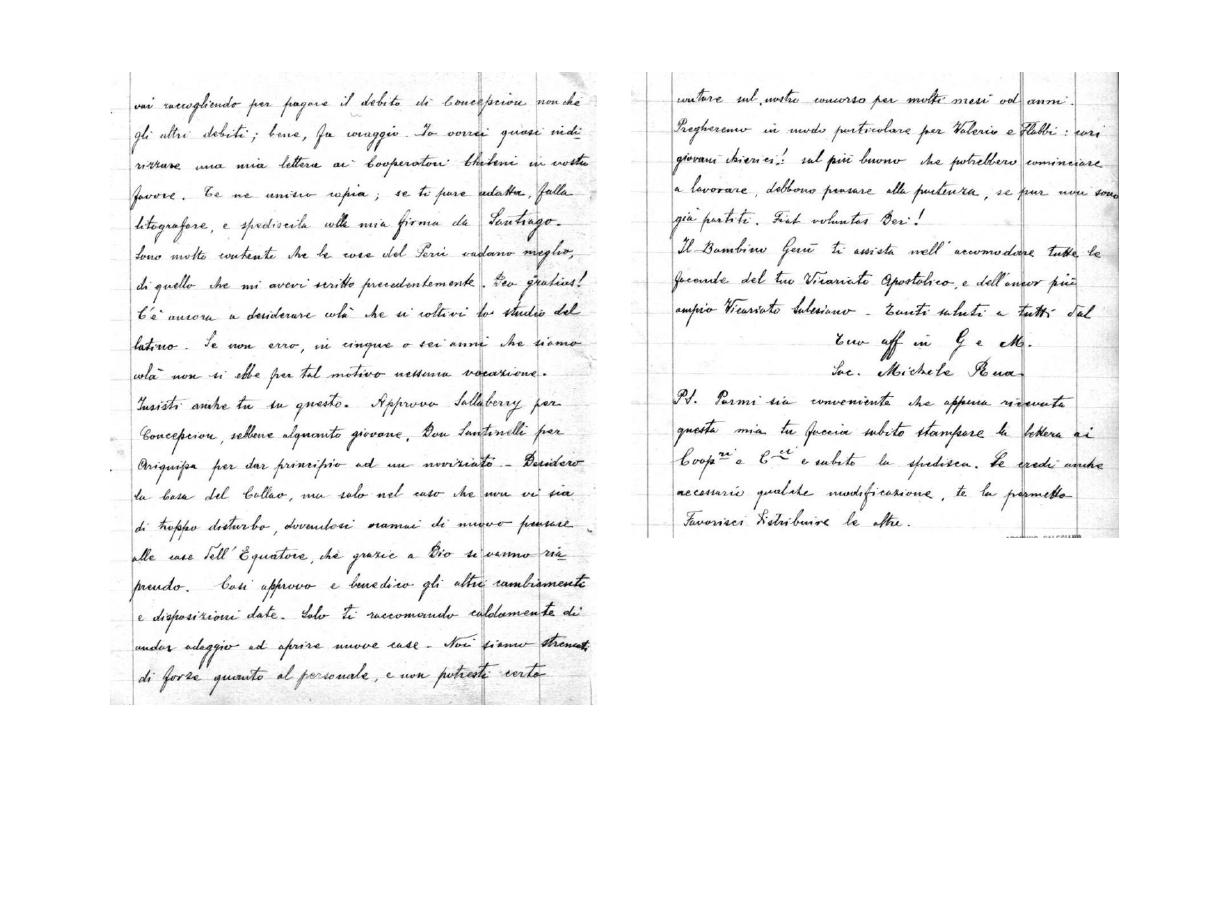 vai raccogliendo per pagare il debito di Concepcion non che
gli altri debiti; bene, fa coraggio. Io vorrei quasi indi-
rizzare una mia lettera ai Cooperatori Chileni in vostro
favore. Te ne unisco copia; se ti pare adatta, falla
litografare, e spediscila colla mia firma da Santiago.
Sono molto contento che le cose del Perù vadano meglio,
di quello che mi avevi scritto precedentemente. Deo gratias!
C'è ancora a desiderare colà che si coltivi lo studio del
latino. Se non erro, in cinque o sei anni che siamo
colà non si ebbe per tal motivo nessuna vocazione.
Insisti anche tu su questo. Approvo Sallaberry per
Concepcion, sebbene alquanto giovane, Don Santinelli per
Ariquipa per dar principio ad un noviziato. - Desidero
la Casa del Callao, ma solo nel caso che non vi sia
di troppo disturbo, dovendosi oramai di nuovo pensare
alle case dell'Equatore, che grazie a Dio si vanno ria-
prendo. Così approvo e benedico gli altri cambiamenti
e disposizioni date. Solo ti raccomando caldamente di
andar adaggio ad aprire nuove case. - Noi siamo stremati
di forze quanto al personale, e non potresti certo
contare sul nostro concorso per molti mesi od anni.
Pregheremo in modo particolare per Valerio e Flabbi: cari
giovani chierici! sul più buono che potrebbero cominciare
a lavorare, debbono pensare alla partenza, se pur non sono
già partiti. Fiat voluntas Dei!
Il Bambino Gesù ti assista nell'accomodare tutte le
faccende del tuo Vicariato Apostolico, e dell'ancor più
ampio Vicariato Salesiano - Tanti saluti a tutti dal
Tuo aff in G e M.
Sac. Michele Rua
PS. Parmi sia conveniente che appena ricevuta
questa mia tu faccia subito stampare la lettera ai
Coop.ri e C.ci e subito la spedisca. Se credi anche
necessario qualche modificazione, te la permetto
Favorisci distribuire le altre.